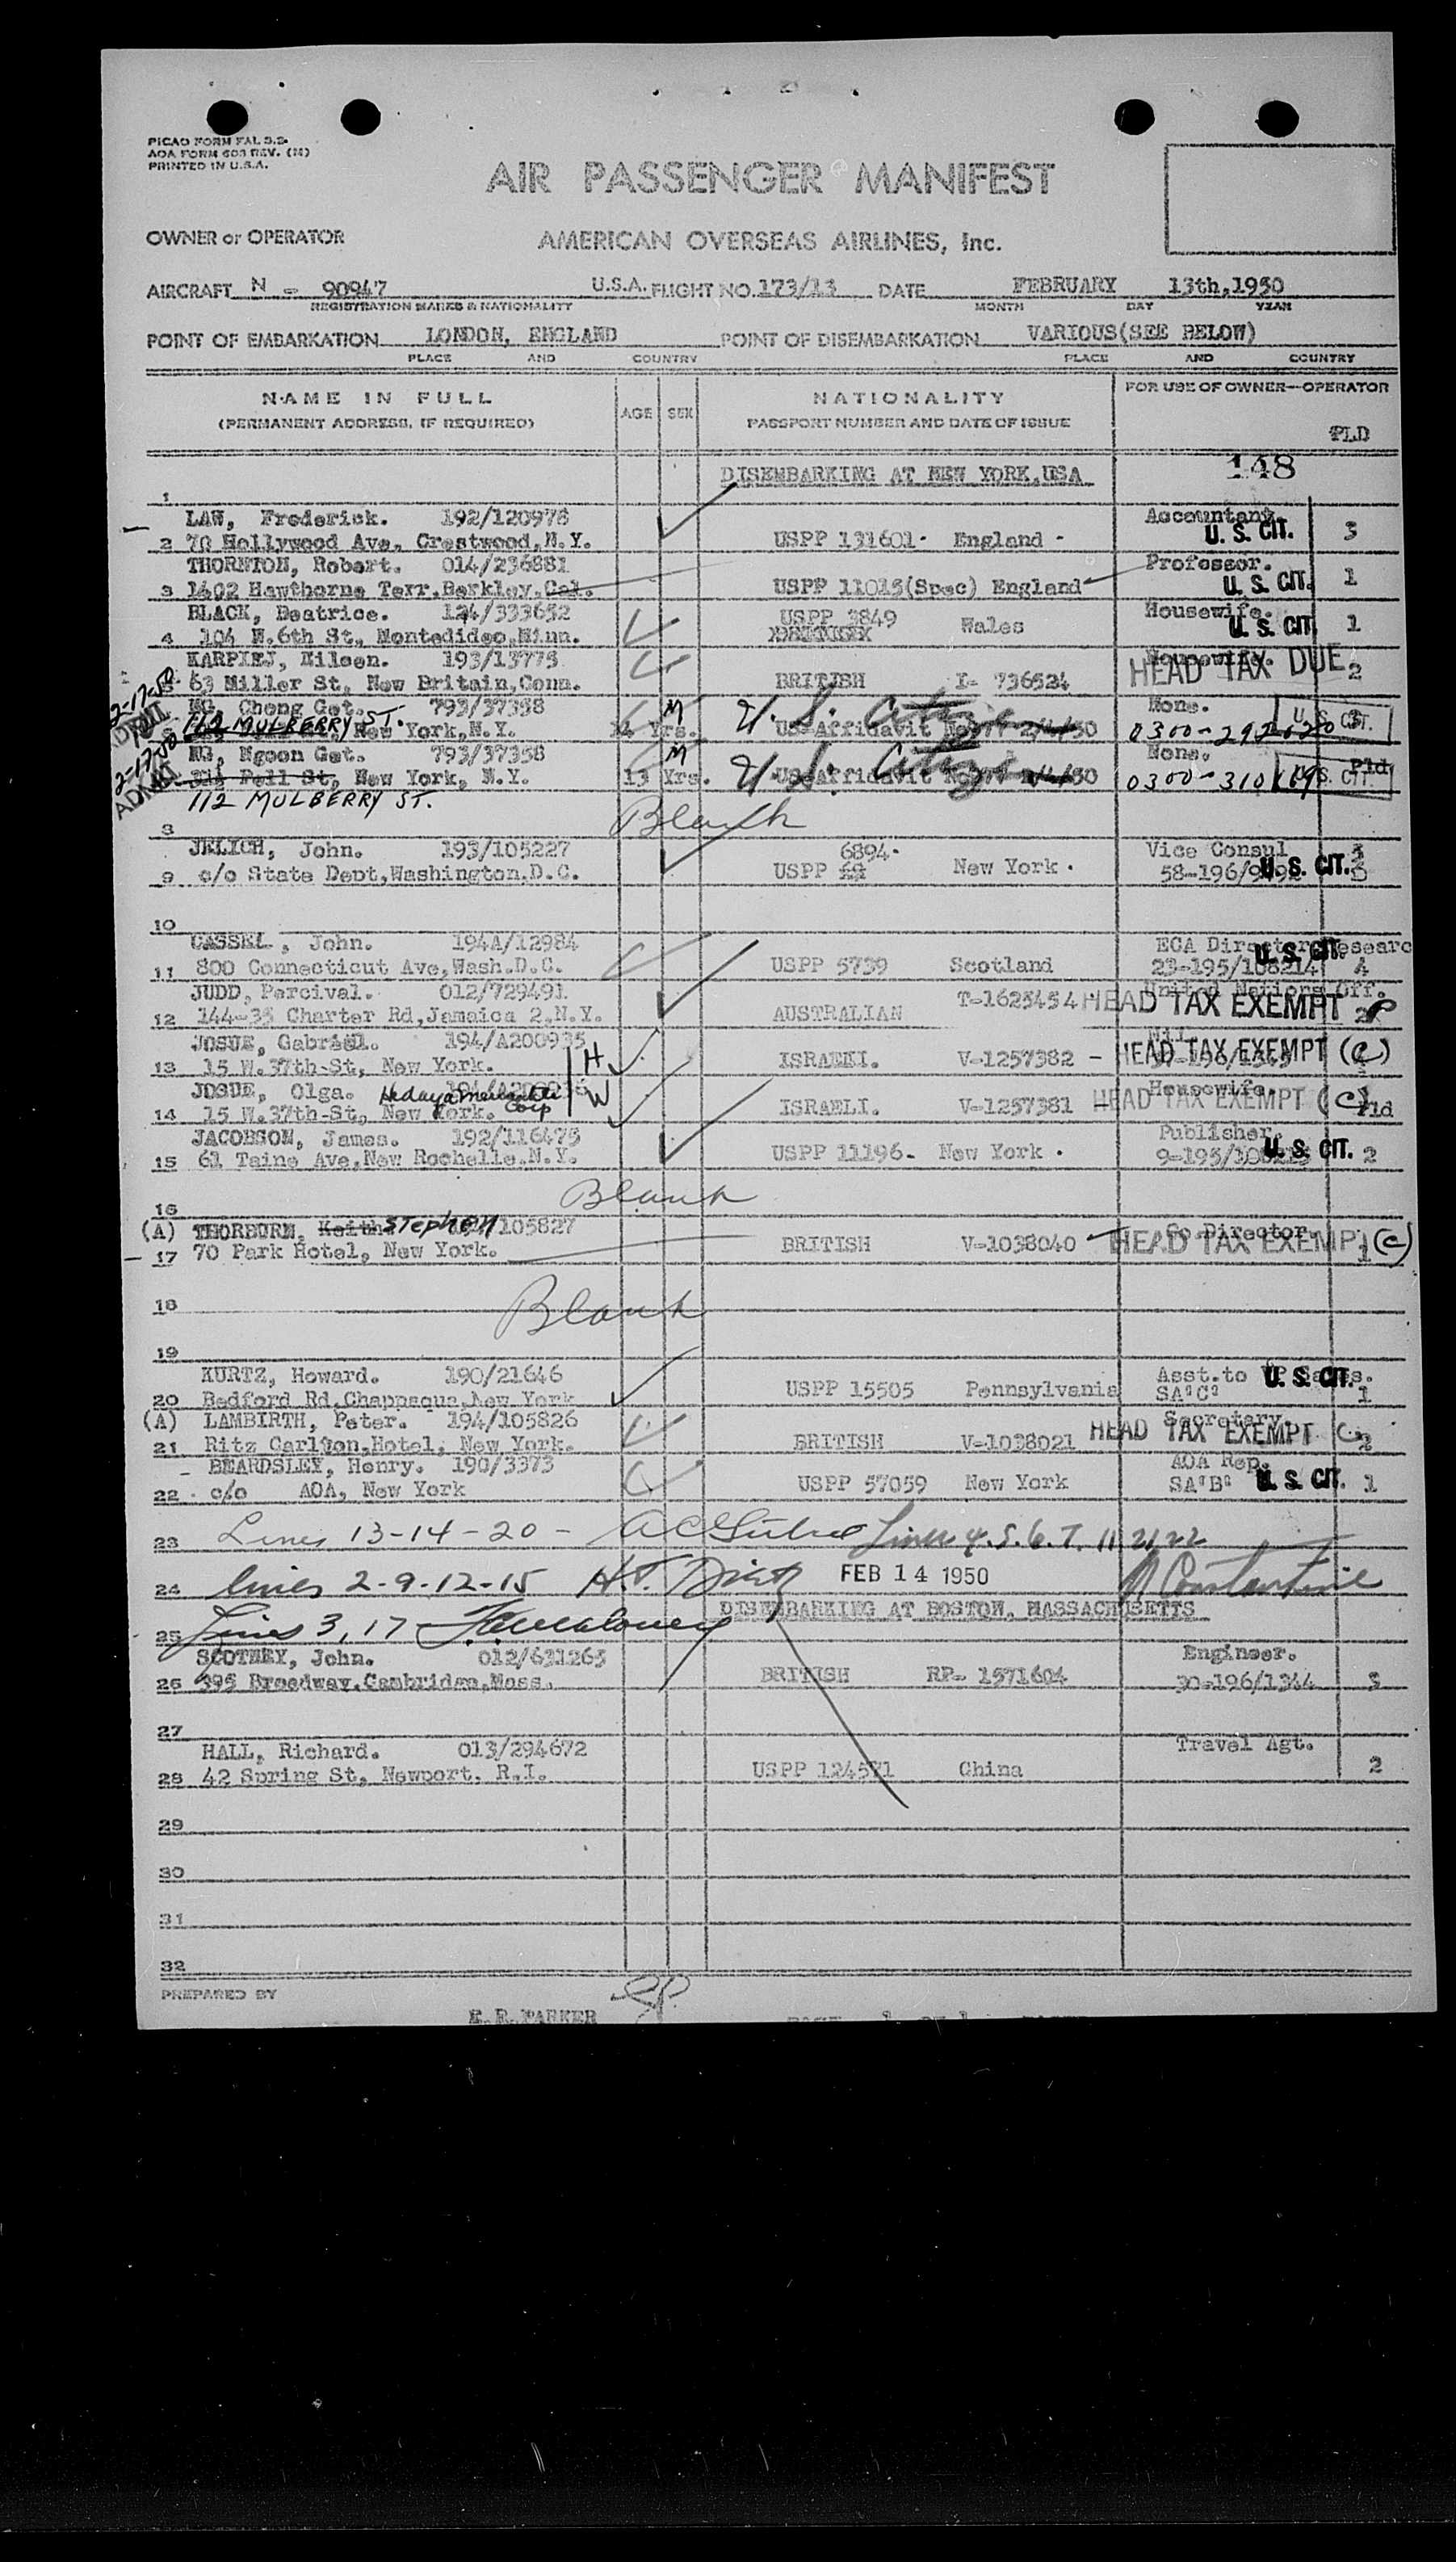 PICAO FORM FAL 3.2-
AOA FORM 603 REV. (M)
PRINTED IN U.S.A.
AIR PASSENGER MANIFEST
OWNER or OPERATOR AMERICAN OVERSEAS AIRLINES, Inc.
AIRCRAFT N - 90947 U.S.A. FLIGHT NO. 173/13 DATE FEBRUARY 13th,1950
REGISTRATION MARKS & NATIONALITY MONTH DAY YEAR
POINT OF EMBARKATION LONDON, ENGLAND POINT OF DISEMBARKATION VARIOUS(SEE BELOW)
PLACE AND COUNTRY PLACE AND COUNTRY
NAME IN FULL AGE SEX NATIONALITY FOR USE OF OWNER—OPERATOR
(PERMANENT ADDRESS, IF REQUIRED) PASSPORT NUMBER AND DATE OF ISSUE PLD
DISEMBARKING AT NEW YORK,USA 148
1
LAW, Frederick. 192/120978 Accountant.
2 70 Hollywood Ave, Crestwood,N.Y. USPP 131601- England - U. S. CIT. 3
THORNTON, Robert. 014/236881 Professor.
3 1402 Hawthorne Terr,Berkley,Cal. USPP 11015(Spec) England U. S. CIT. 1
BLACK, Beatrice. 124/333652 USPP 3849 Housewife.
4 104 N.6th St, Montedideo,Minn. Wales U. S. CIT. 1
KARPIEJ, Eileen. 193/13775 Housewife. HEAD TAX DUE
63 Miller St, New Britain,Conn. BRITISH I- 736524 2
2-17-50 ADMIT
NG, Cheng Get. 793/37358 M U. S. Citizen None. U. S. CIT.
112 MULBERRY ST. New York,N.Y. 14 Yrs. US-Affidavit 0300-292620
2-17-50 ADMIT
NG, Ngoon Get. 793/37358 M U. S. Citizen None. U. S. CIT. Pld
Pell St, New York, N.Y. 13 Yrs. US-Affidavit 0300-310
112 MULBERRY ST.
8 Blank
JELICH, John. 193/105227 6894- Vice Consul 3
9 c/o State Dept,Washington,D.C. USPP 68 New York . 58-196/ U. S. CIT.
10
CASSEL , John. 194A/12984 ECA Director Researc
11 800 Connecticut Ave,Wash.D.C. USPP 5739 Scotland 23-195/108214 U. S. CIT. 4
JUDD, Percival. 012/729491 United Nations Off.
12 144-35 Charter Rd,Jamaica 2,N.Y. AUSTRALIAN T-1625454 HEAD TAX EXEMPT
JOSUE, Gabriel. 194/A200935 H
13 15 W.37th-St, New York. ISRAELI. V-1257382 - HEAD TAX EXEMPT (C)
JOSUE, Olga. W Housewife.
14 15 W.37th-St, New York. Corp ISRAELI. V-1257381 HEAD TAX EXEMPT (C) Pld
JACOBSON, James. 192/116475 Publisher.
15 61 Taine Ave,New Rochelle,N.Y. USPP 11196- New York . 9-195/108215 U. S. CIT. 2
16 Blank
(A) THORBURN, Keith Stephen /105827 Co Director.
17 70 Park Hotel, New York. BRITISH V-1038040 HEAD TAX EXEMPT (C) 1
18 Blank
19
KURTZ, Howard. 190/21646 Asst.to VP Sales.
20 Bedford Rd,Chappaqua,New York USPP 15505 Pennsylvania SA'C' U. S. CIT. 1
(A) LAMBIRTH, Peter. 194/105826 Secretary.
21 Ritz Carlton,Hotel, New York. BRITISH V-1038021 HEAD TAX EXEMPT C 2
BEARDSLEY, Henry. 190/3373 AOA Rep.
22 c/o AOA, New York USPP 57059 New York SA'B' U. S. CIT. 1
23 Lines 13-14-20- Lines 4.5.6.7.11 21,22
24 lines 2-9-12-15 FEB 14 1950 Constantine
DISEMBARKING AT BOSTON, MASSACHUSETTS
25 Lines 3, 17
SCOTNEY, John. 012/631265 Engineer.
26 395 Broadway,Cambridge,Mass. BRITISH RP- 1571604 30-196/1344 3
27
HALL, Richard. 013/294672 Travel Agt.
28 42 Spring St, Newport. R.I. USPP 124571 China 2
29
30
31
32
PREPARED BY
E.R.PARKER